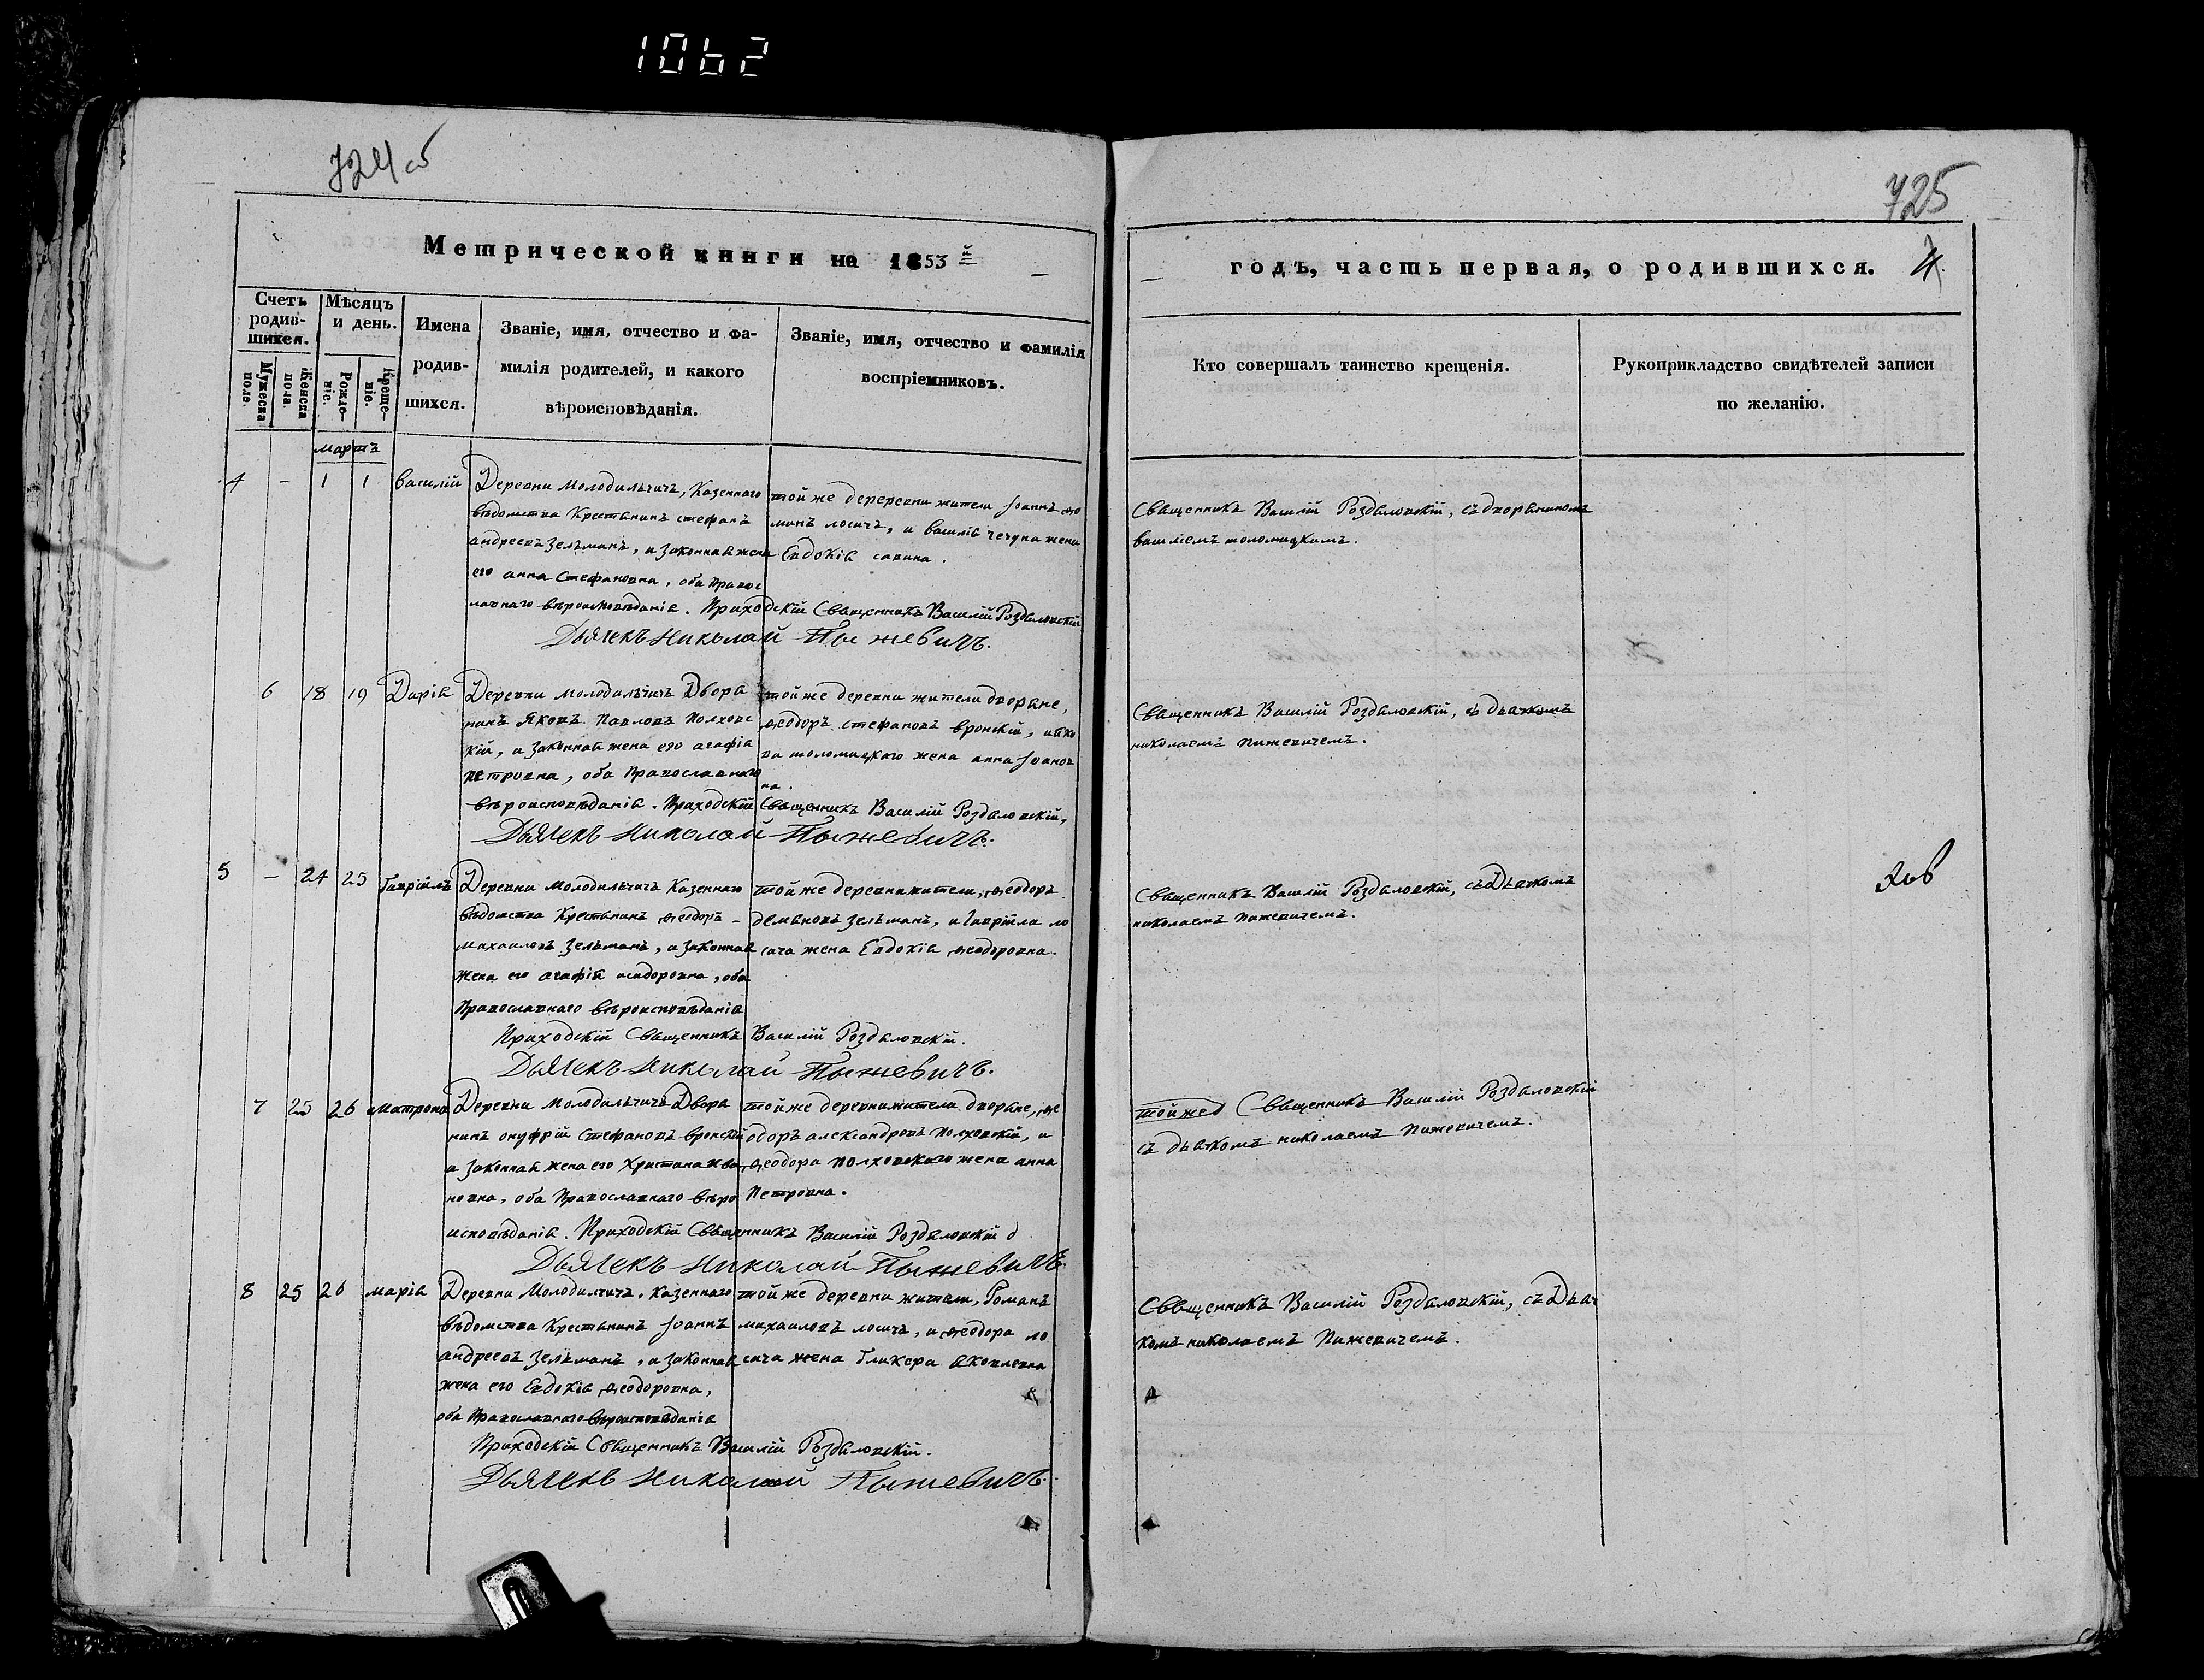 1062
724 об
725
Метрической книги на 1853й
годъ, часть первая, о родившихся. 4.
Счетъ родив-шихся.
Мужеска пола.
Женска пола.
Мѣсяцъ и день.
Рожде-ніе.
Креще-ніе.
Имена
родив-
шихся.
Званіе, имя, отчество и фа-
милія родителей, и какого
вѣроисповѣданія.
Званіе, имя, отчество и фамилія
воспріемниковъ.
Кто совершалъ таинство крещенія.
Рукоприкладство свидѣтелей записи
по желанію.
мартъ
4 - 1 1 василій
Деревни Молодильчичъ, Казеннаго
вѣдомства Крестьянинъ стефанъ
андреевъ Зельманъ, и законная жена
его анна Стефановна, оба Правос
лавнаго вѣроисповѣданія. Приходскій Священникъ Василій Роздяловскій
Дьячекъ Николай Пыжевичъ.
той же дереревни жители Іоаннъ Ѳо
минъ лосичъ, и василія чечуна жена
Евдокія савина.
Священникъ Василій Роздяловскій, съ дворяниномъ
василіемъ толомицкимъ.
6 18 19 Дарія
Деревни Молодильчичъ Дворя
нинъ Яковъ Павловъ Полховс
кій, и законная жена его агафія
петровна, оба Православнаго
вѣроисповѣданія. Приходскій Священникъ Василій Роздяловскій,
Дьячекъ Николай Пыжевичъ.
той же деревни жители дворяне,
Ѳеодоръ стефановъ вронскій, и яко
ва толомицкаго жена анна Іванов
на.
Священникъ Василій Роздяловскій, съ дьячкомъ
николаемъ пижевичемъ.
5 - 24 25 Гавріилъ
Деревни Молодильчичъ Казеннаго
вѣдомства Крестьянинъ Ѳеодоръ -
михаиловъ Зельманъ, и законная
жена его агафія исидоровна, оба
Православнаго вѣроисповѣданія
Приходскій Священникъ Василій Роздяловскій.
Дьячекъ Николай Пыжевичъ.
той же деревни жители, Ѳеодоръ
демяновъ Зельманъ, и гавріила ло
сича жена Евдокія Ѳеодоровна.
Священникъ Василій Роздяловскій, съ Дьячкомъ
николаемъ пижевичемъ.
7 25 26 Матрона
Деревни Молодильчичъ Дворя
нинъ онуфрій Стефановъ вронскій
и законная жена его христина ива
новна, оба Православнаго вѣро
исповѣданія. Приходскій Священникъ Василій Роздяловскій
Дьячекъ Николай Пыжевичъ.
той же деревни жители дворяне, Ѳе
одоръ александровъ Полховскій, и
Ѳеодора полховскаго жена анна
Петровна.
той же Священникъ Василій Роздяловскій
съ дьячкомъ николаемъ Пижевичемъ.
8 25 26 марія
Деревни Молодильчичъ, Казеннаго
вѣдомства Крестьянинъ Іоаннъ
андреевъ Зельманъ, и законная
жена его Евдокія Ѳеодоровна,
оба Православнаго вѣроисповѣданія
Приходскій Священникъ Василій Роздяловскій.
Дьячекъ Николай Пыжевичъ.
той же деревни жители, Романъ
михаиловъ лосичъ, и Ѳеодора ло
сича жена Гликера яковлевна
Священникъ Василій Роздяловскій, съ Дьяч
комъ николаемъ Пижевичемъ.